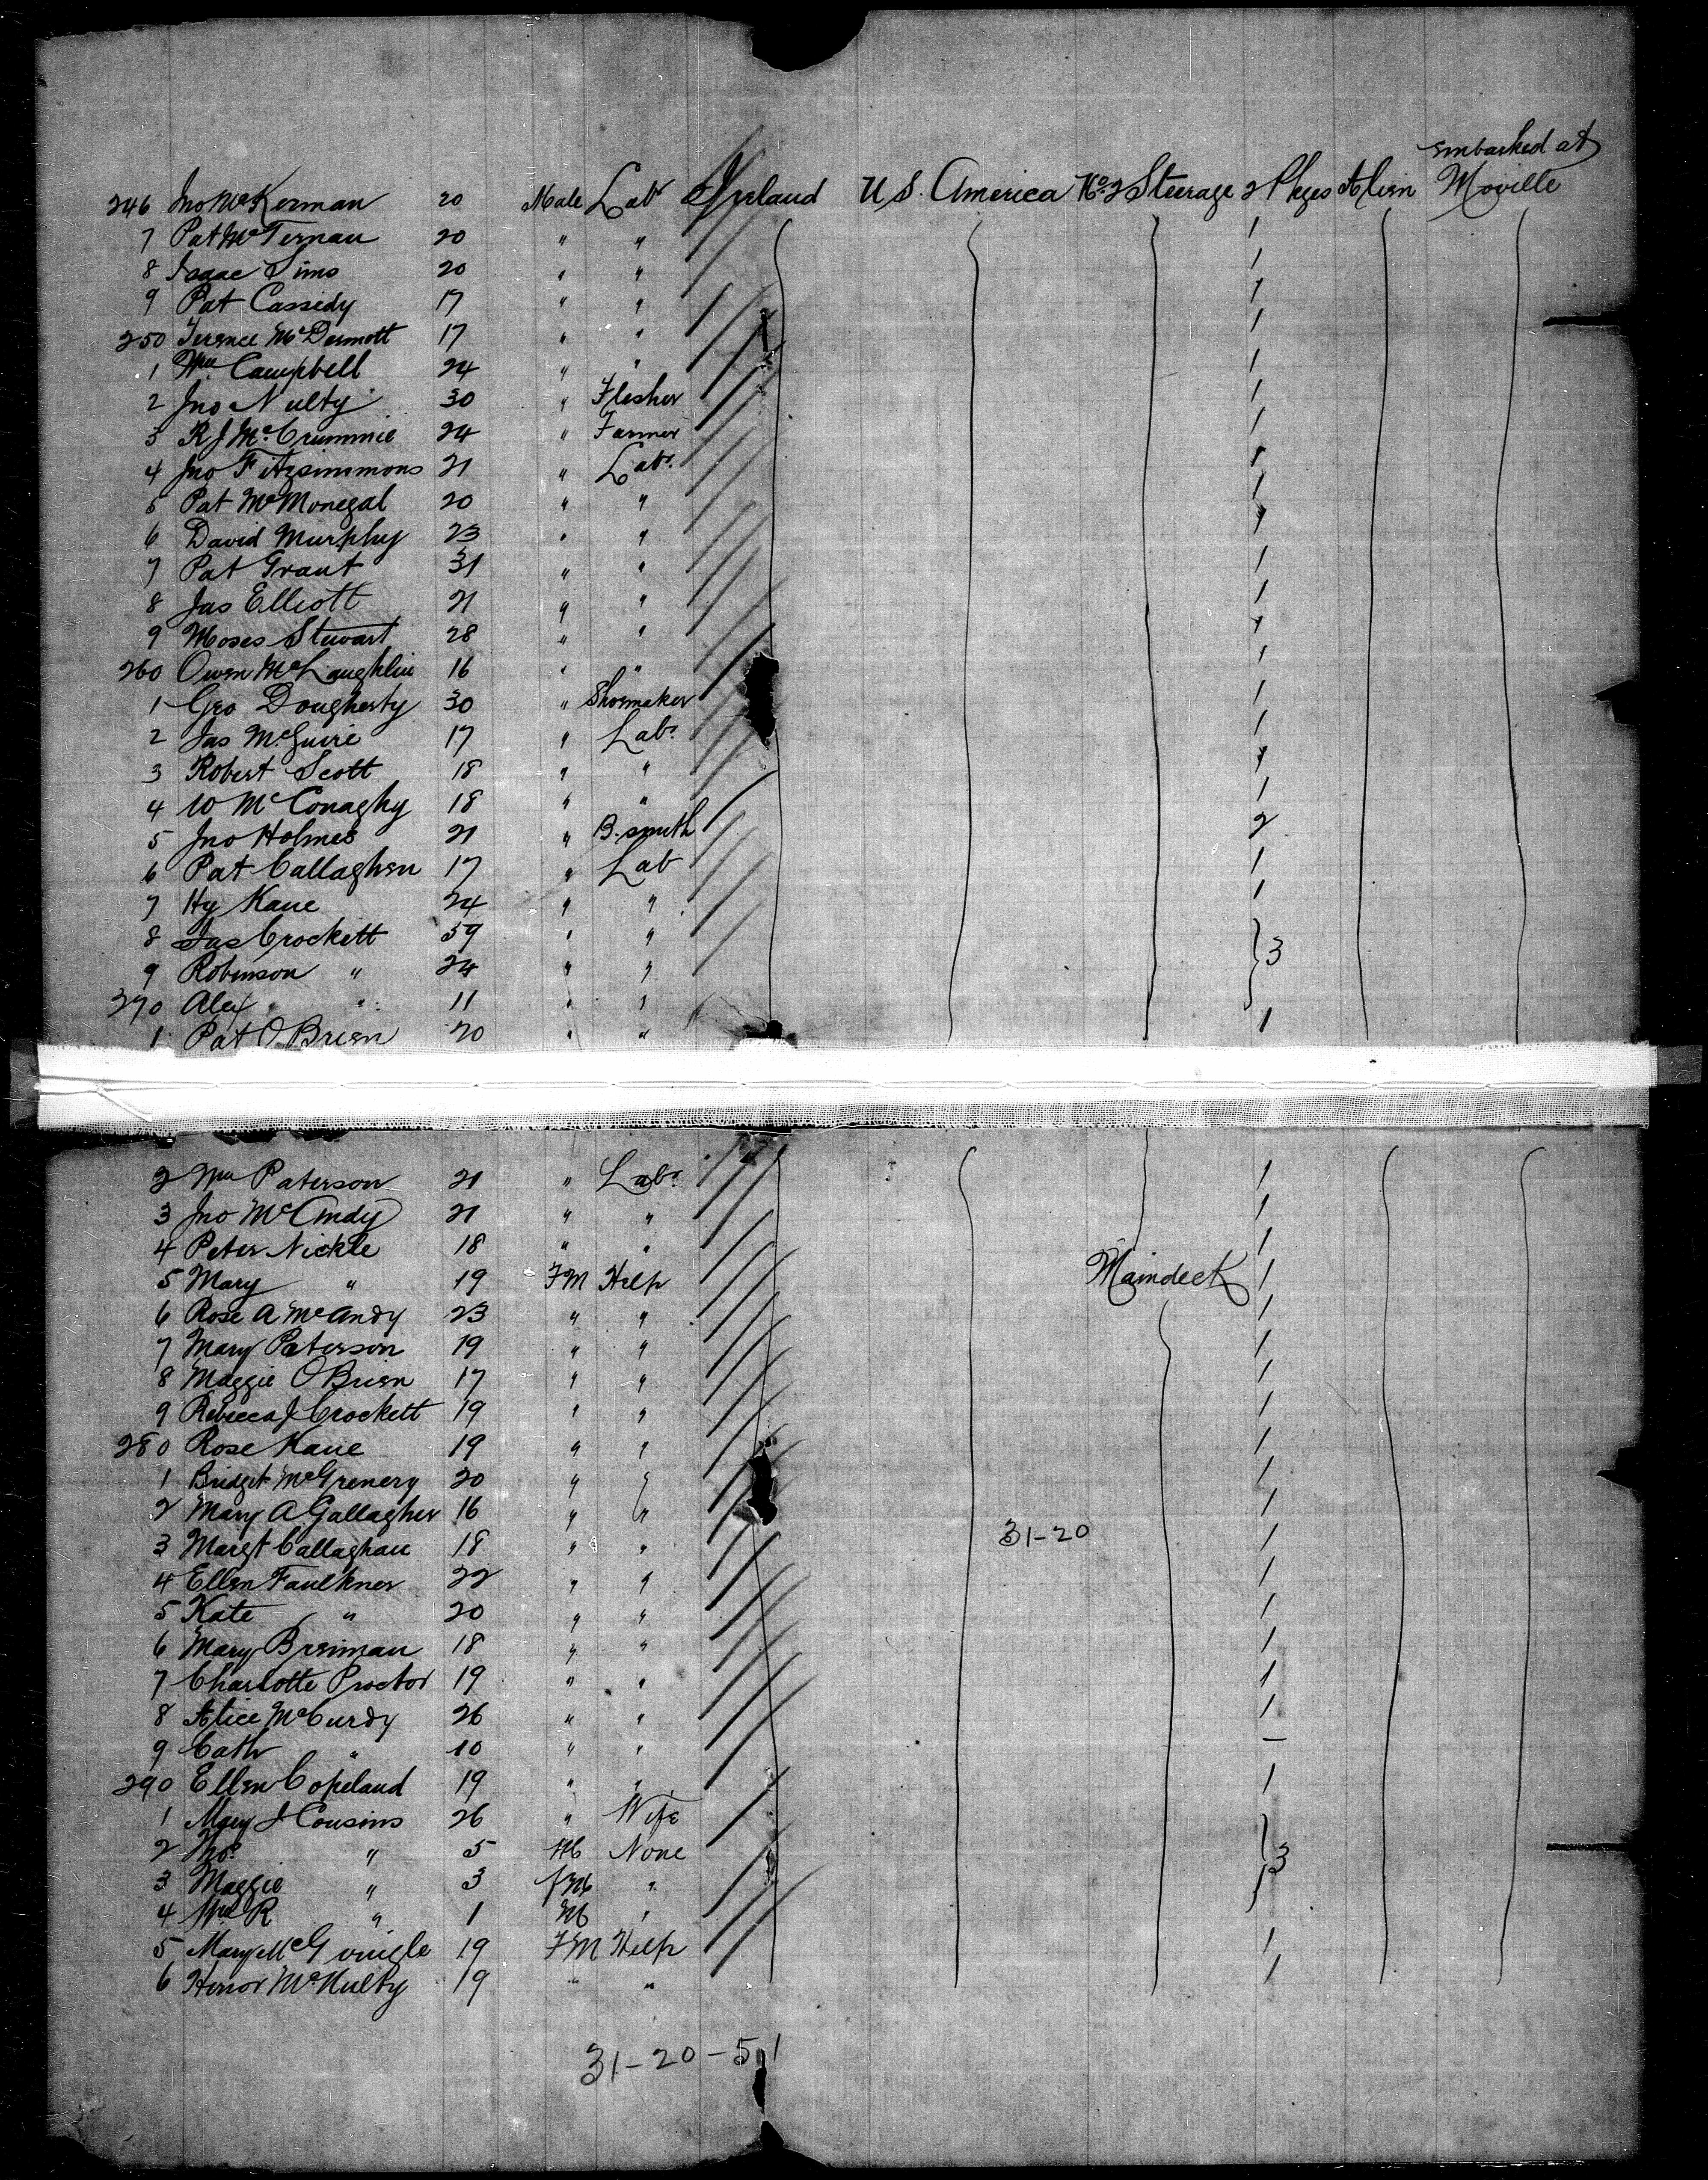 embarked at
246 Jno McKernan 20 Male Labr Ireland U.S. America No 2 Steerage 2 Pkges Alien Moville
7 Pat McTernan 20 " " 1
8 Isaac Sims 20 " " 1
9 Pat Cassidy 17 " " 1
250 Terence McDermott 17 " " 1
1 Wm Campbell 24 " " 1
2 Jno Nulty 30 " Flesher 1
3 R J McCrummie 24 " Farmer 1
4 Jno Fitzsimmons 21 " Labr 1
5 Pat McMonegal 20 " " 1
6 David Murphy 23 " " 1
7 Pat Grant 31 " " 1
8 Jas Elliott 21 " " 1
9 Moses Stewart 28 " " 1
260 Owen McLaughlin 16 " " 1
1 Geo Dougherty 30 " Shoemaker 1
2 Jas McGuire 17 " Labr 1
3 Robert Scott 18 " " 1
4 W McConaghy 18 " " 1
5 Jno Holmes 21 " B. smith 2
6 Pat Callaghen 17 " Lab 1
7 Hy Kane 24 " " 1
8 Jas Crockett 59 " "
9 Robinson " 24 " " 3
270 Alex " 11 " "
1 Pat O'Brien 20 " " 1
2 Wm Paterson 21 " Labr 1
3 Jno McAndy 21 " " 1
4 Peter Nickle 18 " " 1
5 Mary " 19 FM Help Maindeck 1
6 Rose A McAndy 23 " " 1
7 Mary Paterson 19 " " 1
8 Maggie O'Brien 17 " " 1
9 Rebecca J Crockett 19 " " 1
280 Rose Kane 19 " " 1
1 Bridget McGrenery 20 " " 1
2 Mary A Gallagher 16 " " 1
3 Margt Callaghan 18 " " 31-20 1
4 Ellen Faulkner 22 " " 1
5 Kate " 20 " " 1
6 Mary Brennan 18 " " 1
7 Charlotte Proctor 19 " " 1
8 Alice McCurdy 26 " " 1
9 Cath " 10 " " —
290 Ellen Copeland 19 " " 1
1 Mary J Cousins 26 " Wife
2 Thos " 5 M None 3
3 Maggie " 3 FM "
4 Wm R " 1 M "
5 Mary McGonigle 19 FM Help 1
6 Honor McNulty 19 " " 1
31-20-51